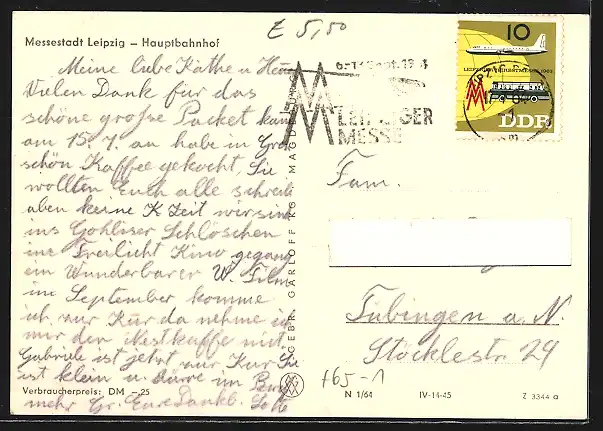 E 5,50
Messestadt Leipzig – Hauptbahnhof
Meine liebe Käthe u
Vielen Dank für das
schöne große Packet kam
am 15. 7. an habe in
schön Kaffee gekocht, Sie
wollten Euch alle
aben keine Zeit wir sind
ins Gohliser Schlöschen
ins Freilicht Kino
ein Wunderbarer W. Film
im September komme
ich nur Kur da nehme
mir den Nestkaffee mit
Gabriele ist jetzt zur Kur Sie
ist klein u. dürre im
mehr Gr. Eure Dankb.
Verbraucherpreis: DM –.25
GEBR. GARLOFF KG
LEIPZIGER
MESSE
10
LEIPZIGER HERBSTMESSE 1963
DDR
Fam.
Tübingen a. N.
Stöcklestr. 29
+65-1
N 1/64
IV-14-45
Z 3344 a